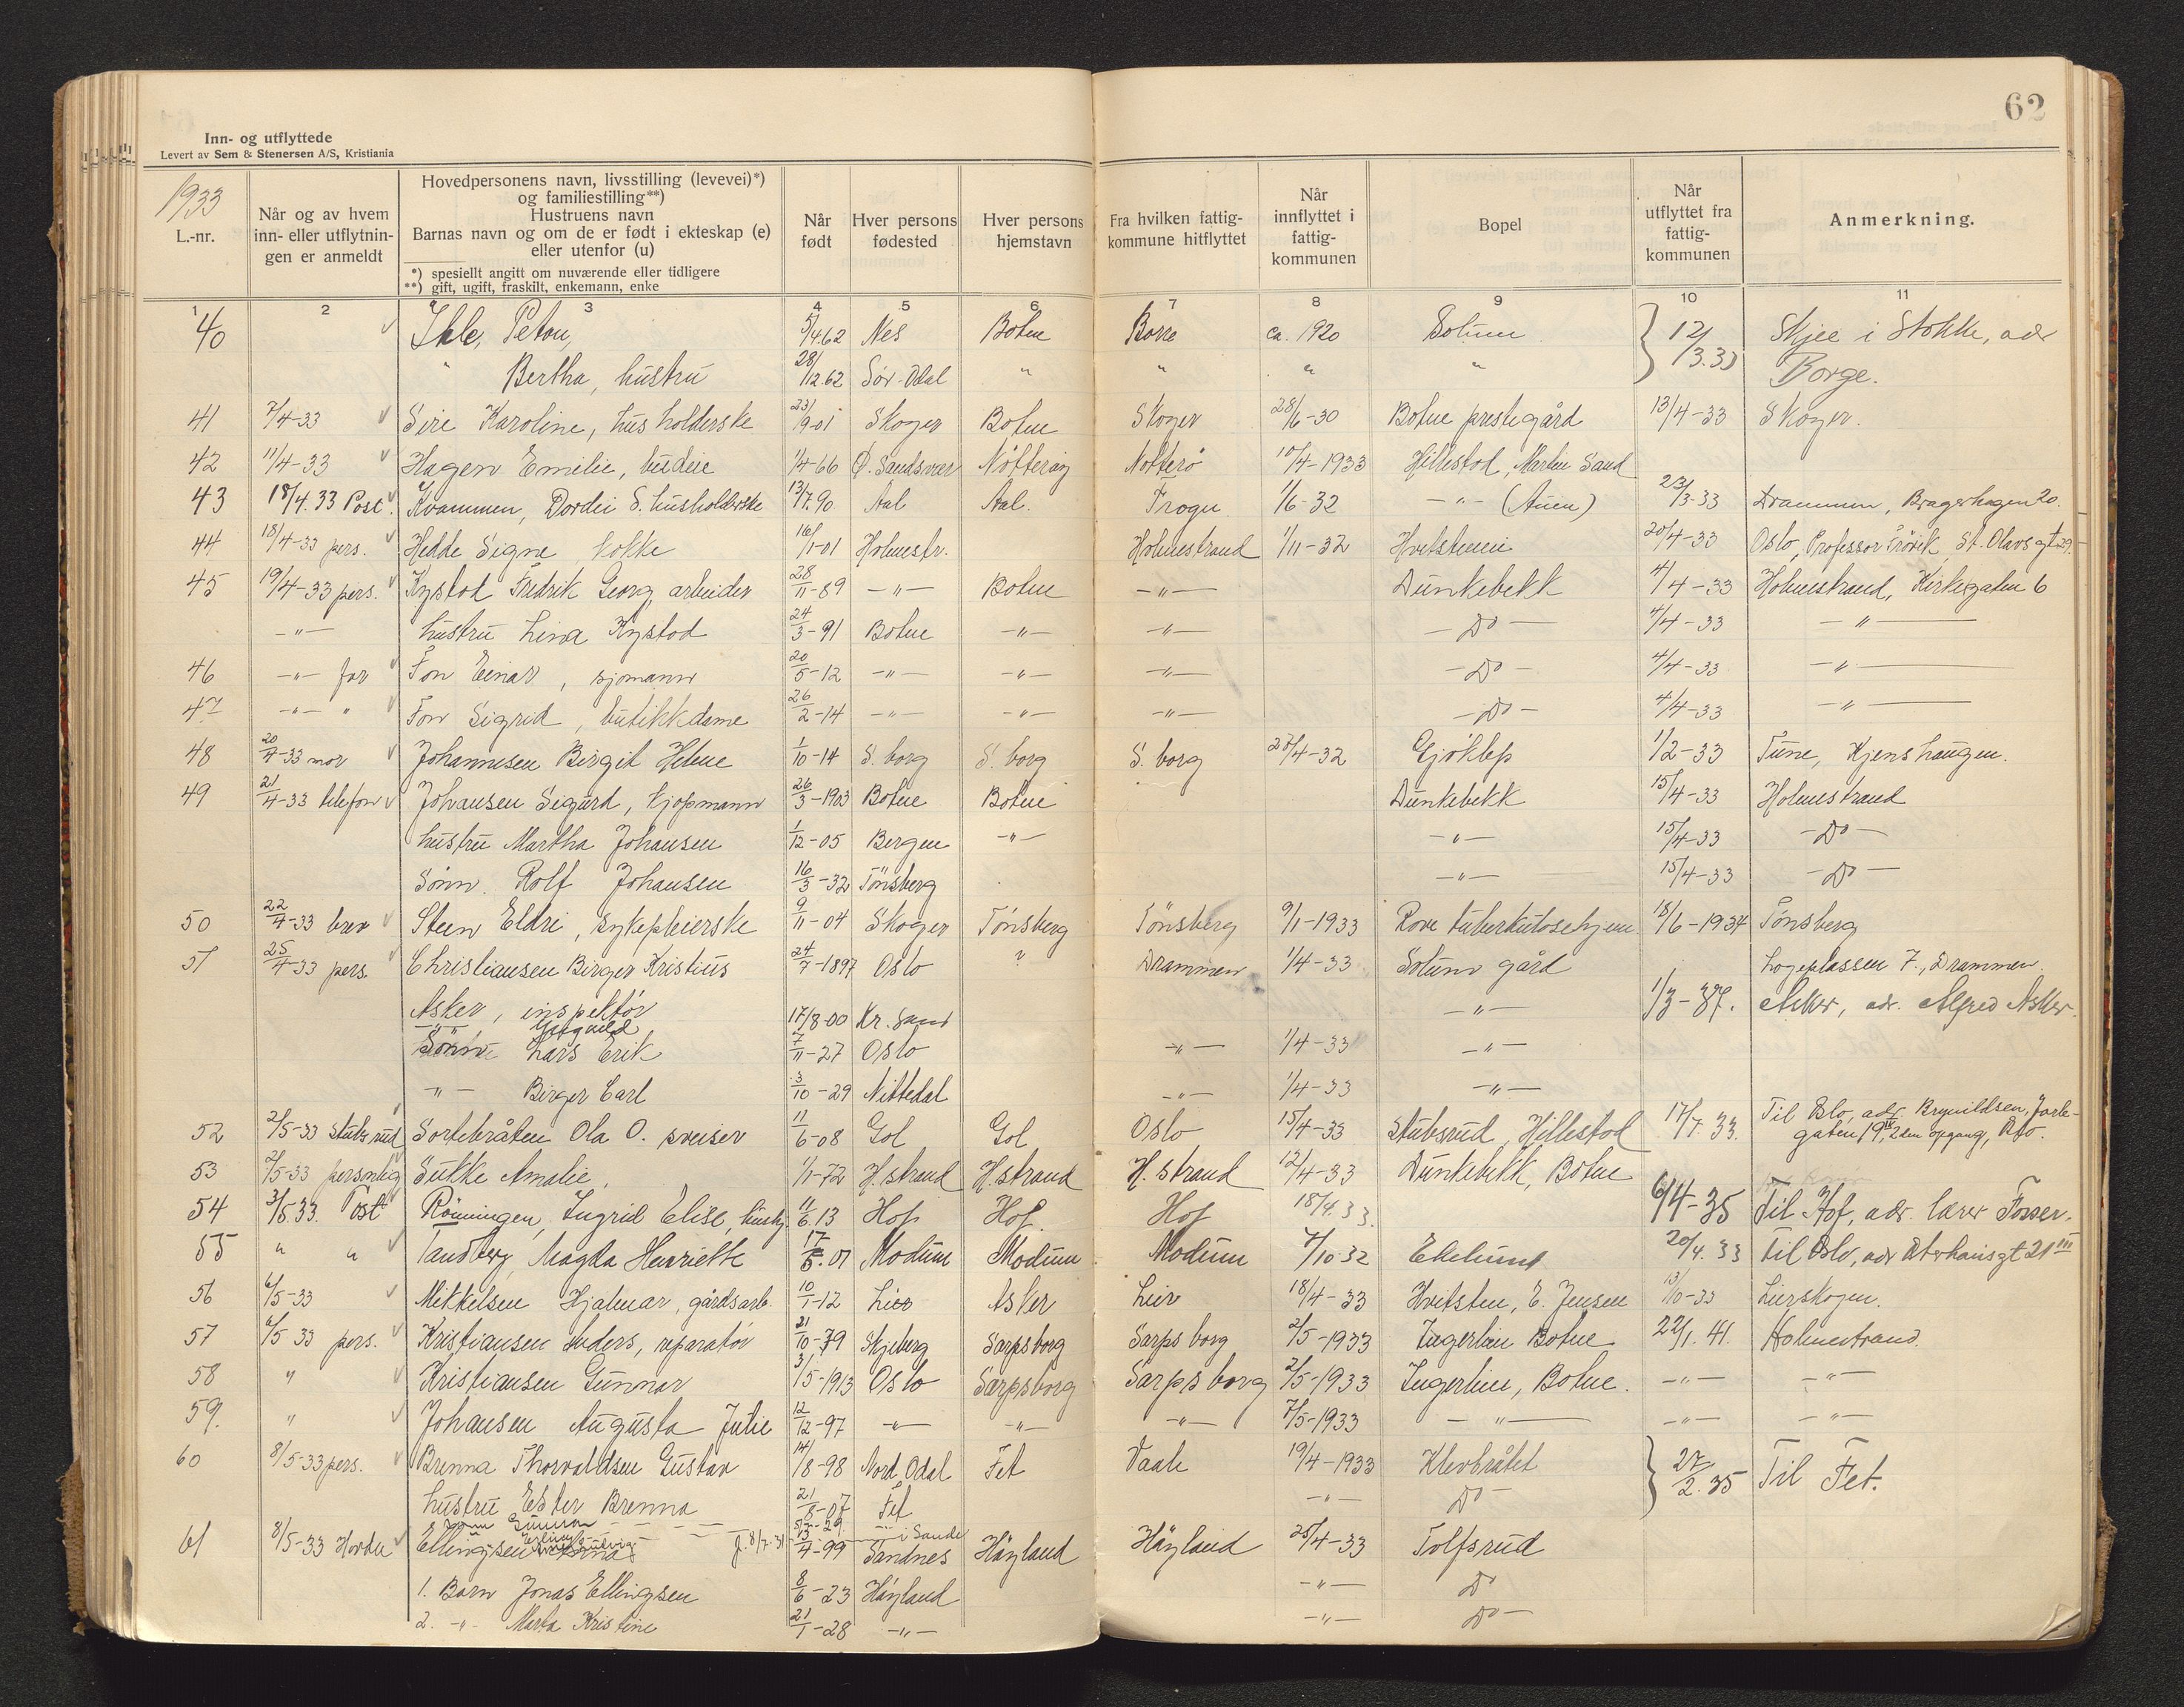 62
Inn- og utflyttede
Levert av Sem & Stenersen A/S, Kristiania
1933
L.-nr.
Når og av hvem
inn- eller utflytnin-
gen er anmeldt
Hovedpersonens navn, livsstilling (levevei)*)
og familiestilling**)
Hustruens navn
Barnas navn og om de er født i ekteskap (e)
eller utenfor (u)
*) spesiellt angitt om nuværende eller tidligere
**) gift, ugift, fraskilt, enkemann, enke
Når
født
Hver persons
fødested
Hver persons
hjemstavn
Fra hvilken fattig-
kommune hitflyttet
Når
innflyttet i
fattig-
kommunen
Bopel
Når
utflyttet fra
fattig-
kommunen
Anmerkning.
1 2 3 4 5 6 7 8 9 10 11
40 Ihle, 5/4.62 Nes Botne Borre ca. 1920 Solum 12/3.33 Skjee i Stokke, adr
" Bertha, hustru 28/12.62 Sør-Odal " " " " Borge.
41 7/4-33 Sire Karoline, husholderske 23/9-01 Skoger Botne Skoger 28/6-30 Botne prestegård 13/4-33 Skoger.
42 11/4-33 Hagen Emilie, budeie 1/4-66 Ø. Sandsvær Nøtterøy Nøtterø 10/4-1933 Hillestad, Martin Sand
43 18/4.33 Post. Kvammen, Dordei S. husholderske 13/7.90 Aal Aal. Frogn 1/6-32 -"- (Auen) 23/3-33 Drammen, Bragerhagen 20.
44 18/4-33 pers. Hedde Signe kokke 16/1-01 Holmestr. Holmestrand 1/11-32 Hvitstein 20/4-33 Oslo, Professor Frövik, St. Olavs gt 29.
45 19/4-33 pers. Kystod Fredrik Georg, arbeider 28/11-89 -"- Botne -"- Dunkebekk 4/4-33 Holmestrand, Kirkegaten 6
-"- hustru Lina Kystod 24/3-91 Botne -"- -"- -Do- 4/4-33 -"-
46 -"- far Fon Einar, sjømann 20/5-12 -"- -"- -"- -Do- 4/4-33 -"-
47 -"- " Fon Sigrid, butikkdame 26/2-14 -"- -"- -"- -Do- 4/4-33 -"-
48 20/4-33 mor Johannesen Birgit Helene 1/10-14 S. borg S. borg S. borg 27/4-32 Gjøklep 1/2-33 Tune, Kjenshaugen.
49 21/4-33 telefon Johansen Sigurd, kjøpmann 26/3-1903 Botne Botne Dunkebekk 15/4-33 Holmestrand
hustru Martha Johansen 1/12-05 Bergen -"- -"- 15/4-33 -Do-
Sønn Rolf Johansen 16/3-32 Tönsberg -"- 15/4-33 -Do-
50 22/4-33 brev Steen Eldri, sykepleierske 9/11-04 Skoger Tønsberg Tönsberg 9/1-1933 Rove tuberkulosehjem 18/6-1934 Tønsberg
51 25/4-33 pers. Christiansen Birger Kristius 24/7-1897 Oslo ? Drammen 1/4-33 Solum gård Logeplassen 7., Drammen.
Asker, inspektør 17/8-00 Kr. Sand -"- 1/3-37. Asker, adr. Alfred Asker.
Sönn Lars Erik 7/11-27 Oslo -"- 1/4-33 -"-
-"- Birger Carl 3/10-29 Nittedal -"- 1/4-33 -"-
52 2/5-33 Stubsrud Sortebråten Ola O. sveiser 11/6-08 Gol Gol Oslo 15/4-33 Stubsrud, Hillestad 17/7.33. Til Oslo, adr. Brynildsen, Jarle-
gaten 19, 2den opgang, Oslo.
53 2/5-33 personlig Sukke Amalie, 1/1-72 H.strand H.strand H. strand 12/4-33 Dunkebekk, Botne
54 3/5.33. Post Rönningen, Ingrid Elise, hushj. 11/6.13 Hof Hof. Hof 18/4.33. 6/4-35 Til Hof, adr. lærer Fosser.
55 " " Tandberg Magda Henriette 17/5.01 Modum Modum Modum 7/10-32 Ekelund 20/4.33 Til Oslo, adr. 21 III
56 6/5-33 Mikkelsen Hjalmar, gårdsarb. 10/1-12 Lier Asker Lier 18/4-33 Hvitsten, E. Jensen 13/10-33 Lierskogen.
57 6/5 33 pers. Kristiansen Anders, reparatör 21/10-79 Skjeberg Sarpsborg Sarpsborg 2/5-1933 Ingerlien Botne 22/1.41. Holmestrand.
58 " Kristiansen Gunnar 31/5-1913 Oslo Sarpsborg Sarpsborg 2/5-1933 Ingerlien, Botne. -"- -"-
59. " Johansen Augusta Julie 12/12-97 -"- -"- -"- 7/5-1933 -"- -"- -"-
60 8/5-33 pers. Brenna Thorvaldsen Gustav 14/8-98 Nord. Odal Fet Vaale 19/4-1933 Klevbråtet 27/2.35 Til Fet.
hustru Ester Brenna 21/8-07 Fet -"- Do-
sønn Gunnar i Sande
61 8/5-33 Horden Ellingsen f. 8/7.31 13/4-99 Sandnes Høyland Høyland 25/4-33 Tolfsrud
1. Barn Jonas Ellingsen 8/6-23 Høyland -"- Do
2. -"- Marta Kristine 21/1-28 -"- -"- Do-